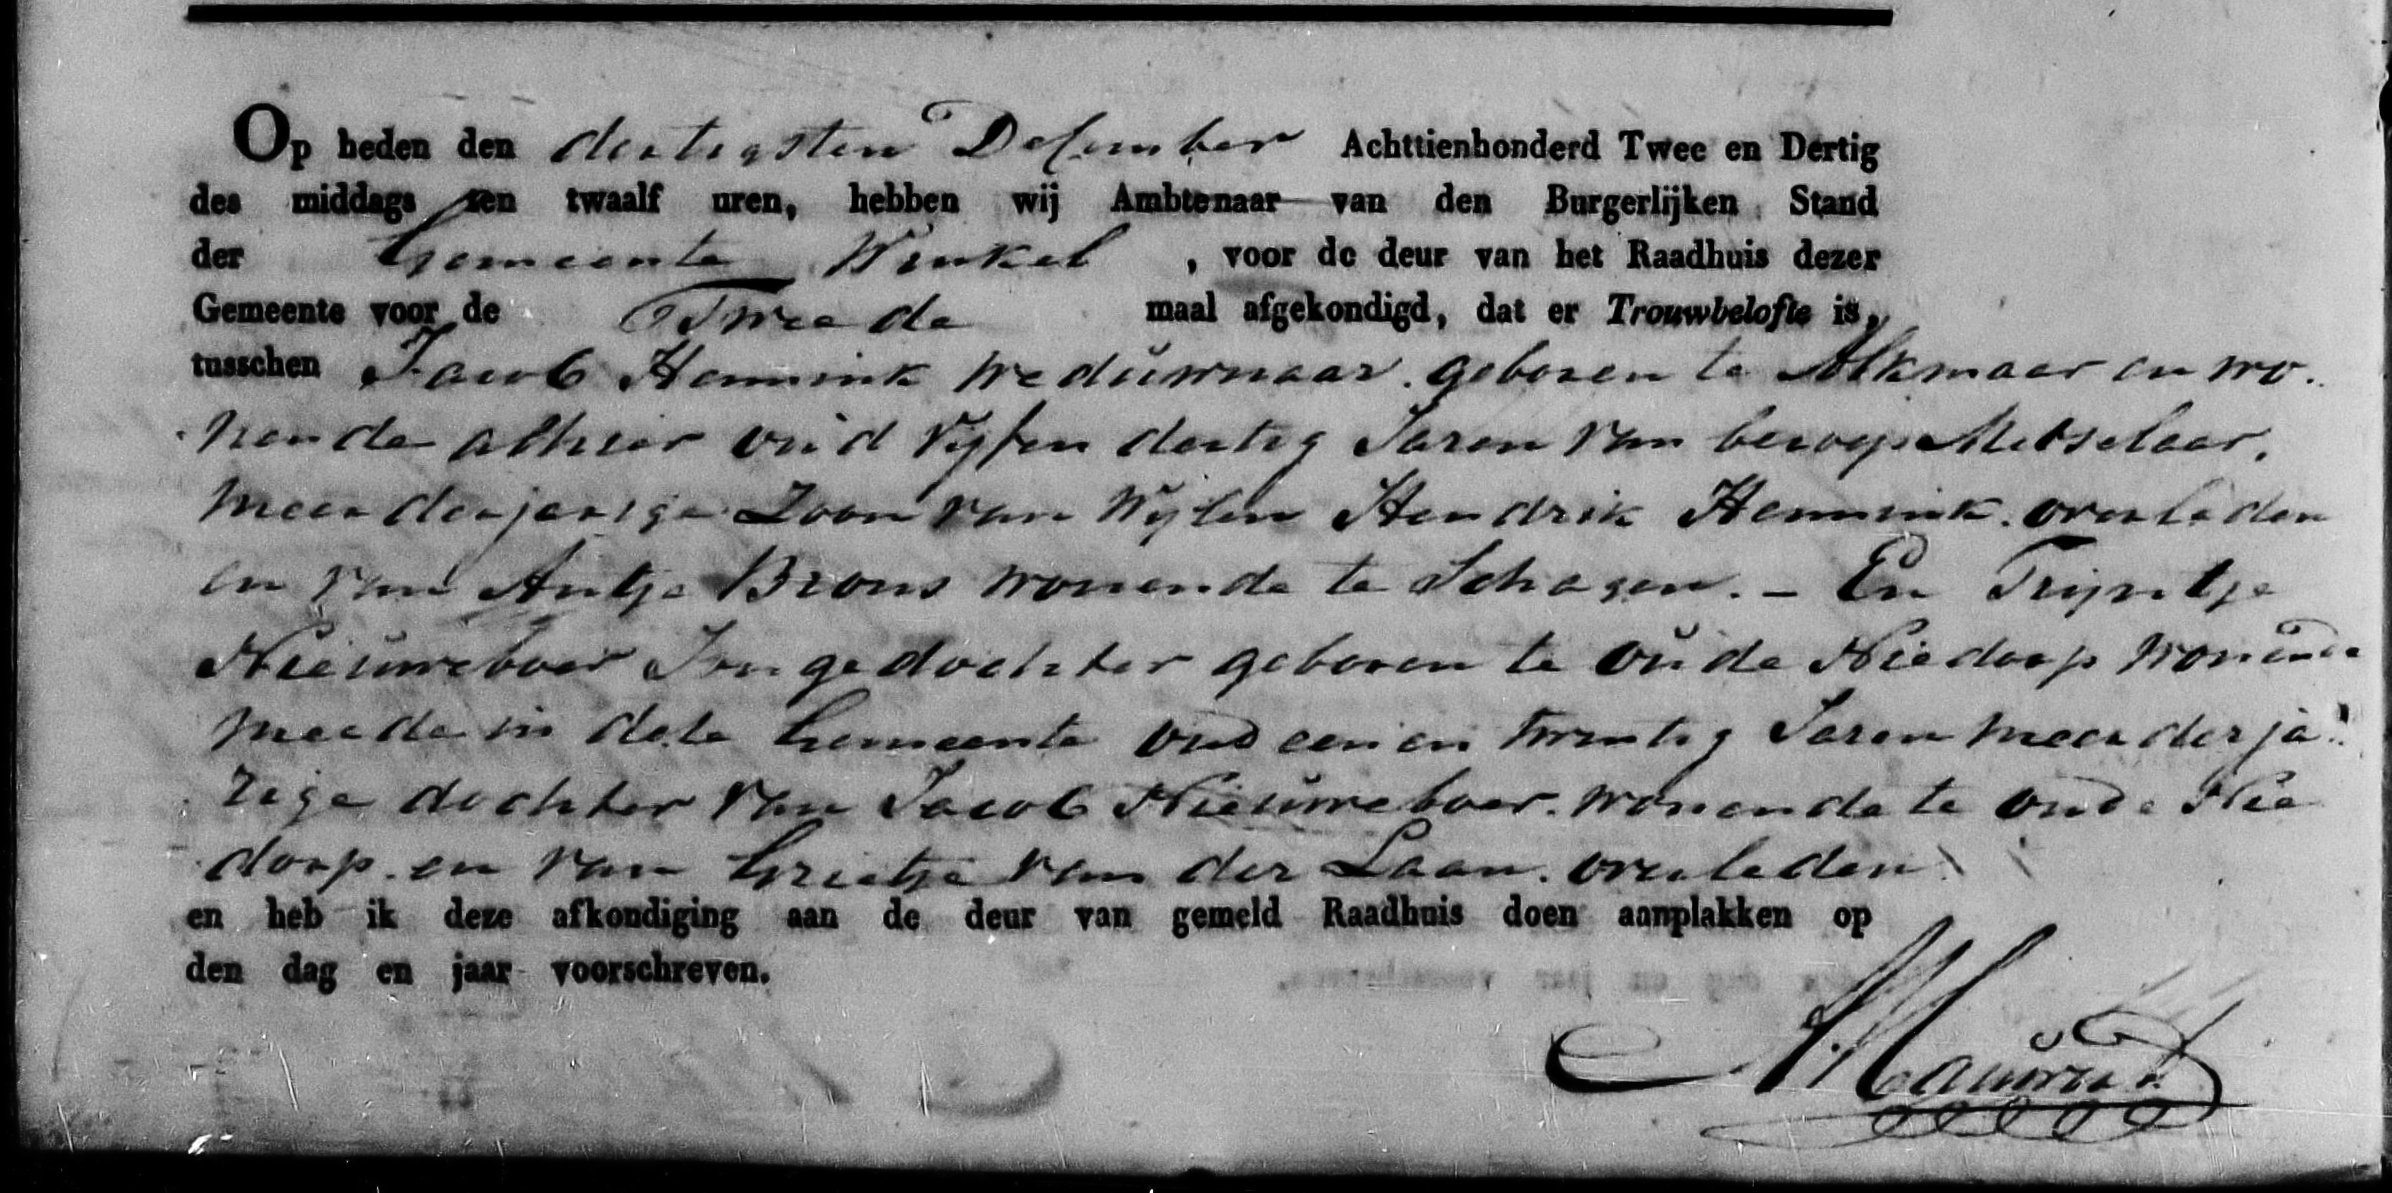 Op heden den dertigsten December Achttienhonderd Twee en Dertig
des middags ten twaalf uren, hebben wij Ambtenaar van den Burgerlijken Stand
der Gemeente Winkel , voor de deur van het Raadhuis dezer
Gemeente voor de Tweede maal afgekondigd, dat er Trouwbelofte is,
tusschen Jacob Hennink weduwnaar. geboren te Alkmaar en wo-
nende alhier oud vyf en dertig Jaren van beroep Metselaar,
meerderjarige Zoon van Wylen Hendrik Hennink. overleden
en van Antje Brons wonende te Schagen. - En Trijntje
Nieuweboer Jonge dochter geboren te Oude Niedorp wonende
meede in deze Gemeente oud een en twintig Jaren meerderja-
rige dochter van Jacob Nieuweboer. wonende te Oude Nie
dorp. en van Grietje van der Laan. overleden
en heb ik deze afkondiging aan de deur van gemeld Raadhuis doen aanplakken op
den dag en jaar voorschreven.